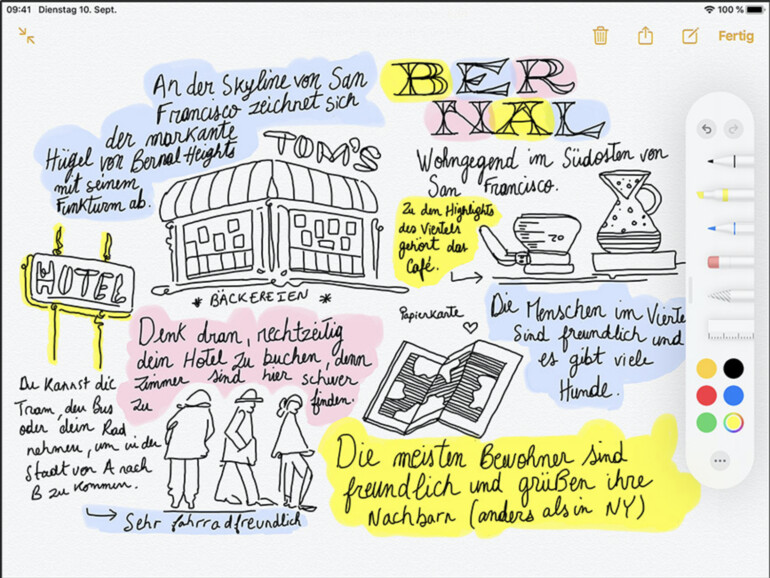 09:41 Dienstag 10. Sept.
100 %
Fertig
An der Skyline von San
Francisco zeichnet sich
der markante
Hügel von Bernal Heights
mit seinem
Funkturm ab.
BER
NAL
Wohngegend im Südosten von
San Francisco.
TOM'S
* BÄCKEREIEN *
HOTEL
Zu den Highlights
des Viertels
gehört das
Café.
20
Denk dran, rechtzeitig
dein Hotel zu buchen, denn
Zimmer sind hier schwer
zu finden.
Papierkarte
Die Menschen im Vierte
sind freundlich und
es gibt viele
Hunde.
Du kannst die
Tram, den Bus
oder dein Rad
nehmen, um in der
Stadt von A nach
B zu kommen.
Sehr fahrradfreundlich
Die meisten Bewohner sind
freundlich und grüßen ihre
Nachbarn (anders als in NY)